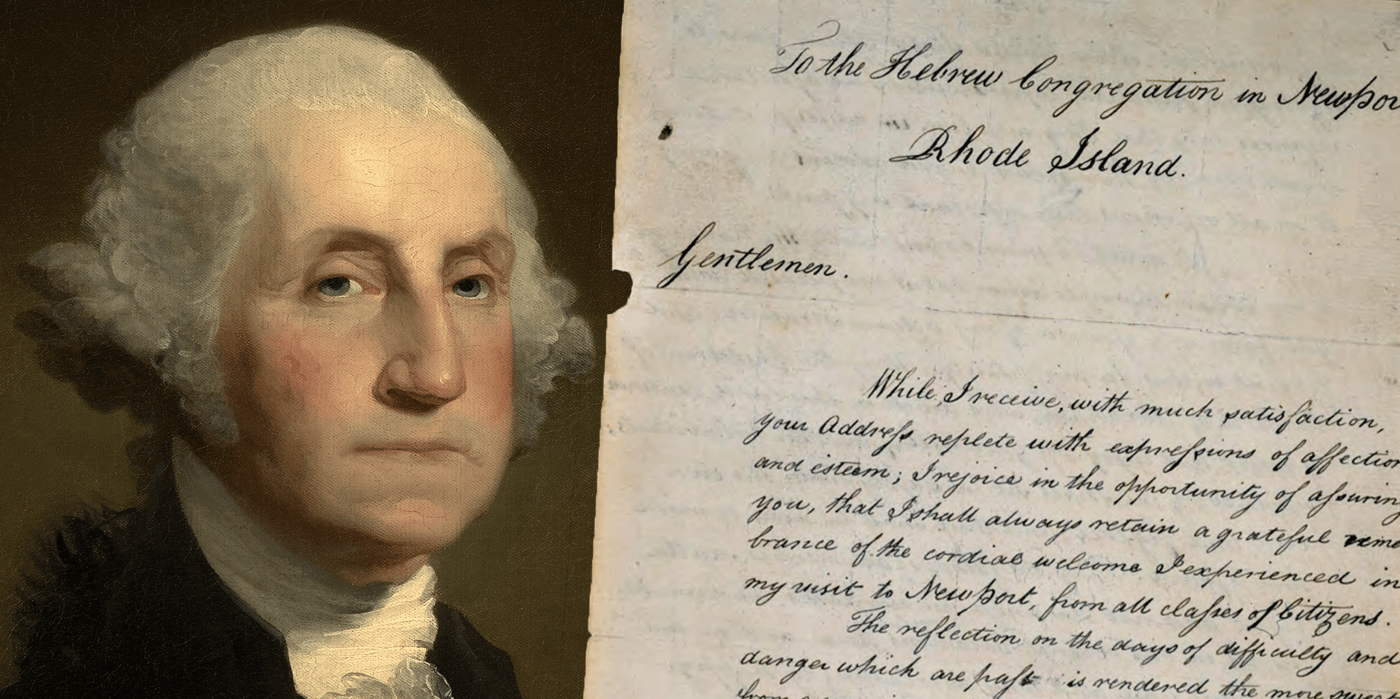 To the Hebrew Congregation in Newpor
Rhode Island.
Gentlemen.
While I receive, with much satisfaction,
your Address replete with expressions of affection
and esteem; I rejoice in the opportunity of assuring
you, that I shall always retain a grateful reme
brance of the cordial welcome I experienced in
my visit to Newport, from all classes of Citizens.
The reflection on the days of difficulty and
danger which are past is rendered the more swee
from